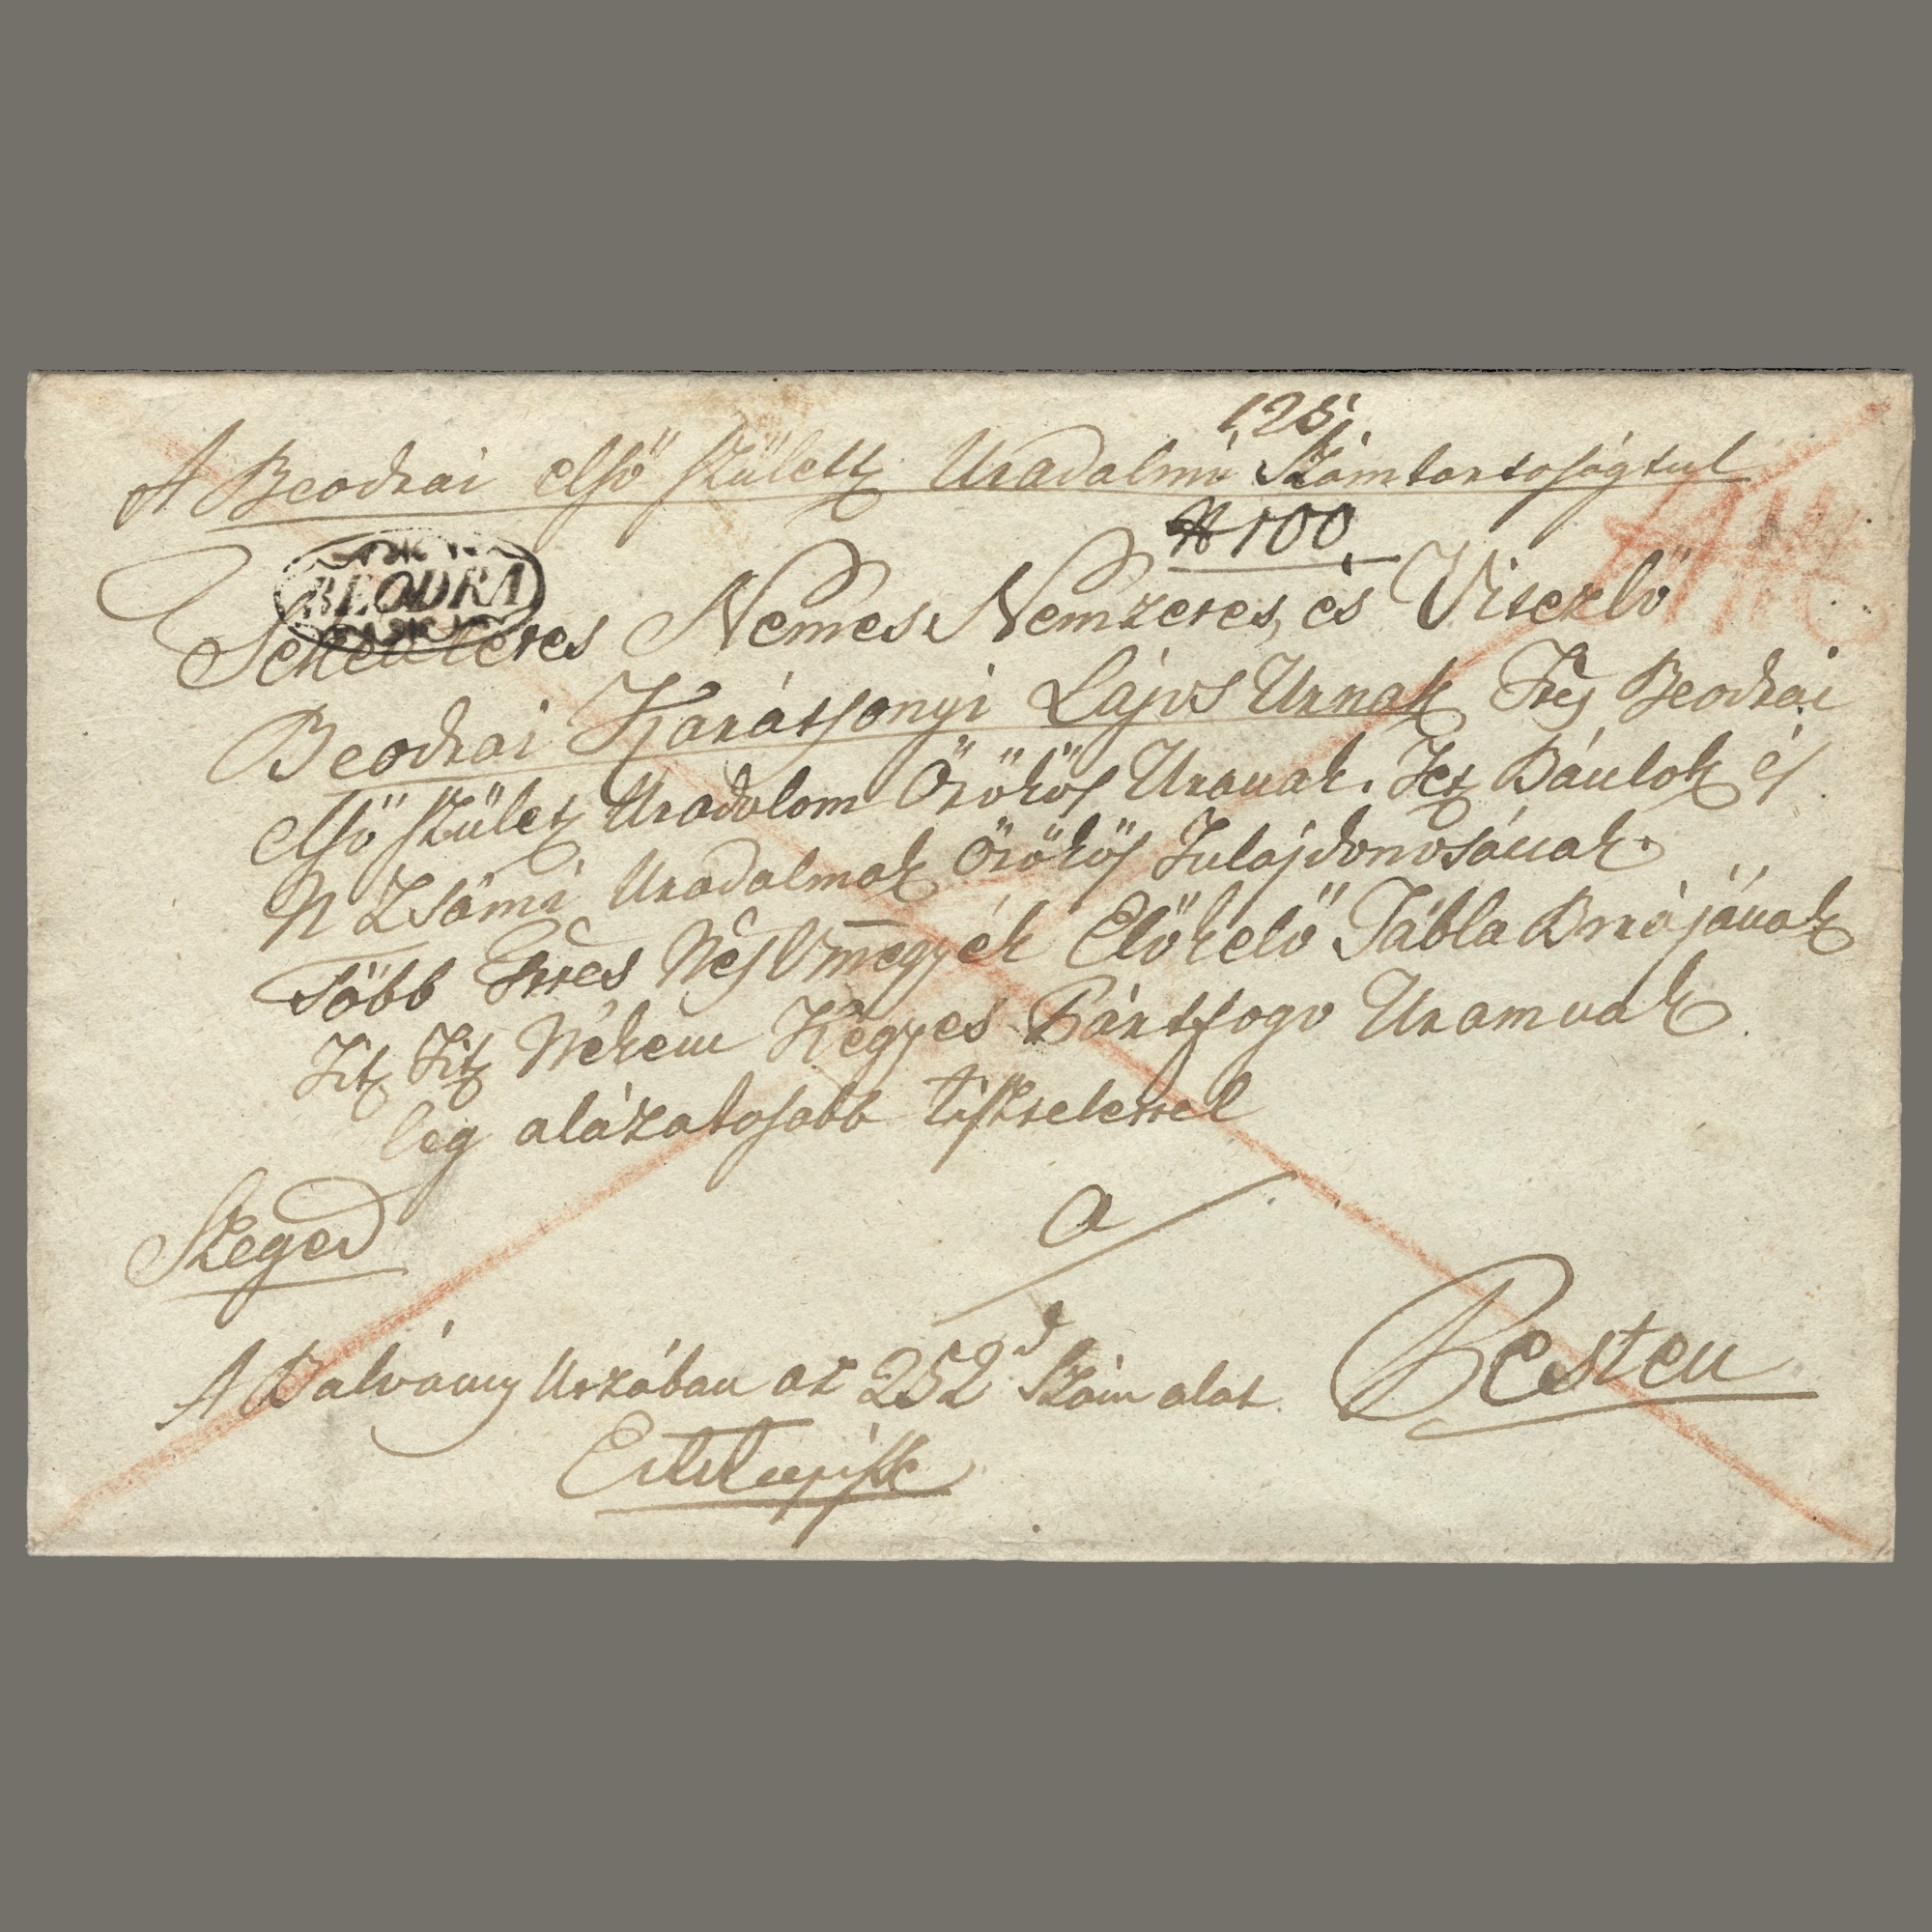 125.
A Beodrai első születt Uradalmi Számtartoságtul
N 100
BEODRA
Nemes Nemzetes, és Vitezlö
Beodrai Karátsonyi Lájos Urnak Beodrai
első szület Uradalom Örökös Uranak. Bánlok és
N Zsámi Uradalmak Örökös Tulájdonosának.
több Vmegyék Elökelö Tábla Birájának
Titz Titz Nékem Kegyes Pártfogo Uramnak
leg alázatosabb tisztelettel
Szeged
a
A Balvány Utzában az 252d Szám alat. Pesten